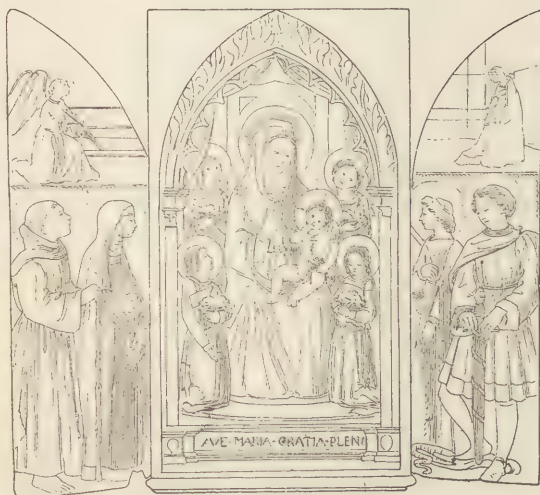 AVE·MARIA·GRATIA·PLENI